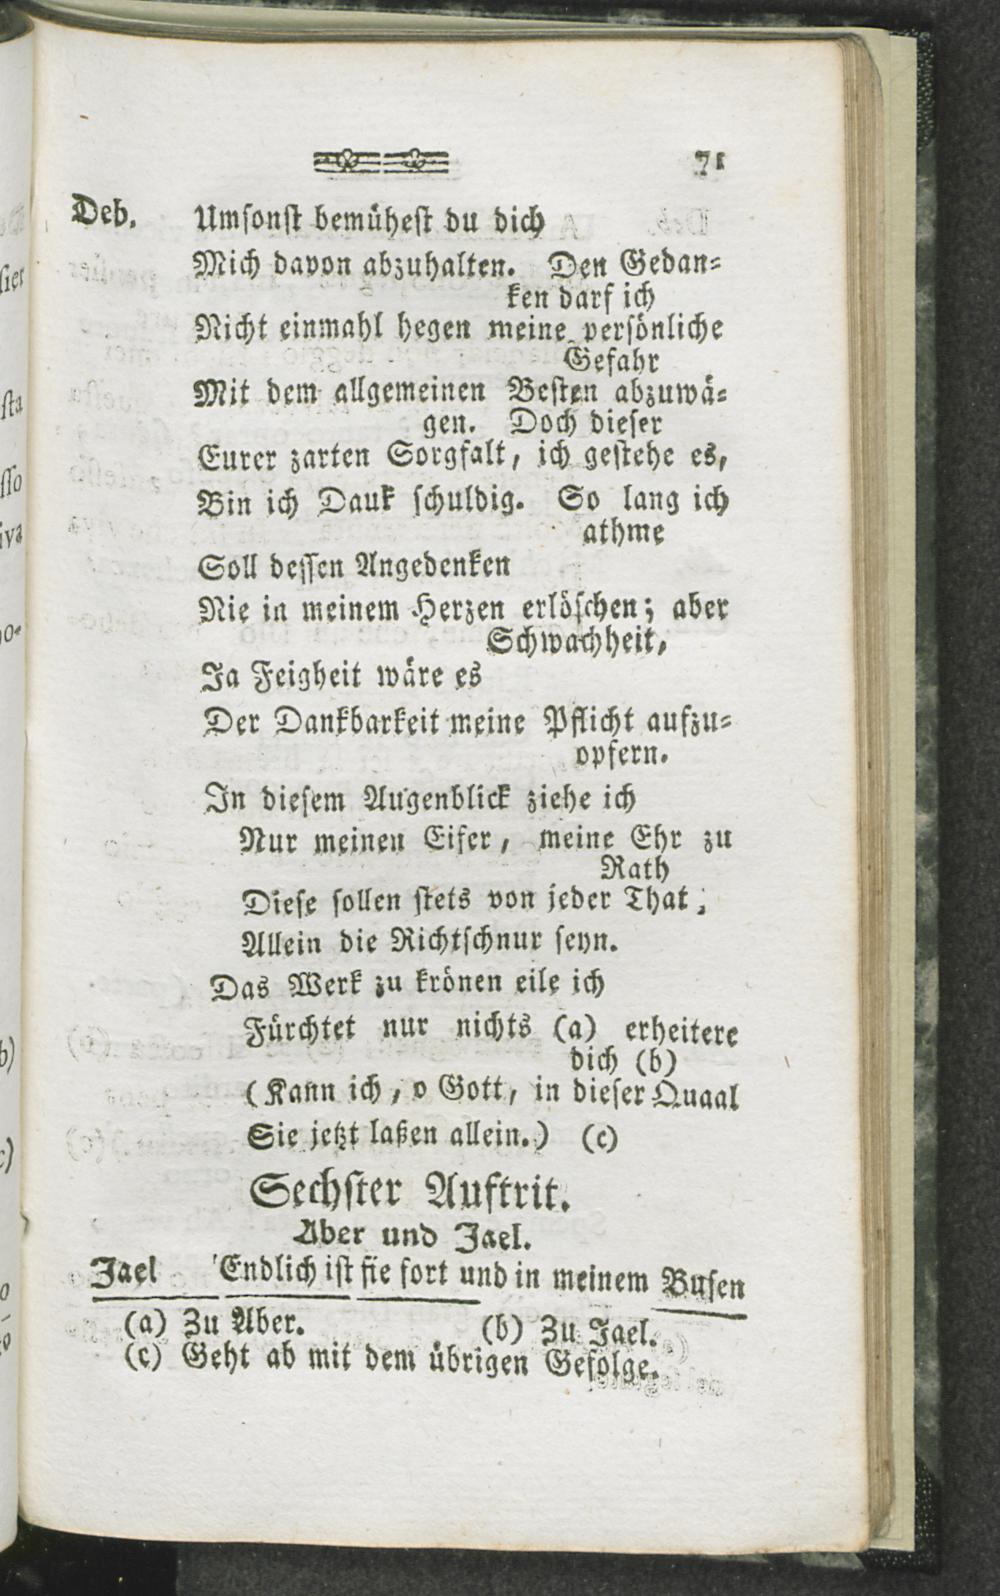 71
Deb. Umsonst bemühest du dich
Mich davon abzuhalten. Den Gedan-
ken darf ich
Nicht einmahl hegen meine persönliche
Gefahr
Mit dem allgemeinen Besten abzuwä-
gen. Doch dieser
Eurer zarten Sorgfalt, ich gestehe es,
Bin ich Dauk schuldig. So lang ich
athme
Soll dessen Angedenken
Nie in meinem Herzen erlöschen; aber
Schwachheit,
Ja Feigheit wäre es
Der Dankbarkeit meine Pflicht aufzu-
opfern.
In diesem Augenblick ziehe ich
Nur meinen Eifer, meine Ehr zu
Rath
Diese sollen stets von jeder That,
Allein die Richtschnur seyn.
Das Werk zu krönen eile ich
Fürchtet nur nichts (a) erheitere
dich (b)
(Kann ich, o Gott, in dieser Quaal
Sie jetzt laßen allein.) (c)
Sechster Auftrit.
Aber und Jael.
Jael Endlich ist sie fort und in meinem Busen
(a) Zu Aber. (b) Zu Jael.
(c) Geht ab mit dem übrigen Gefolge.